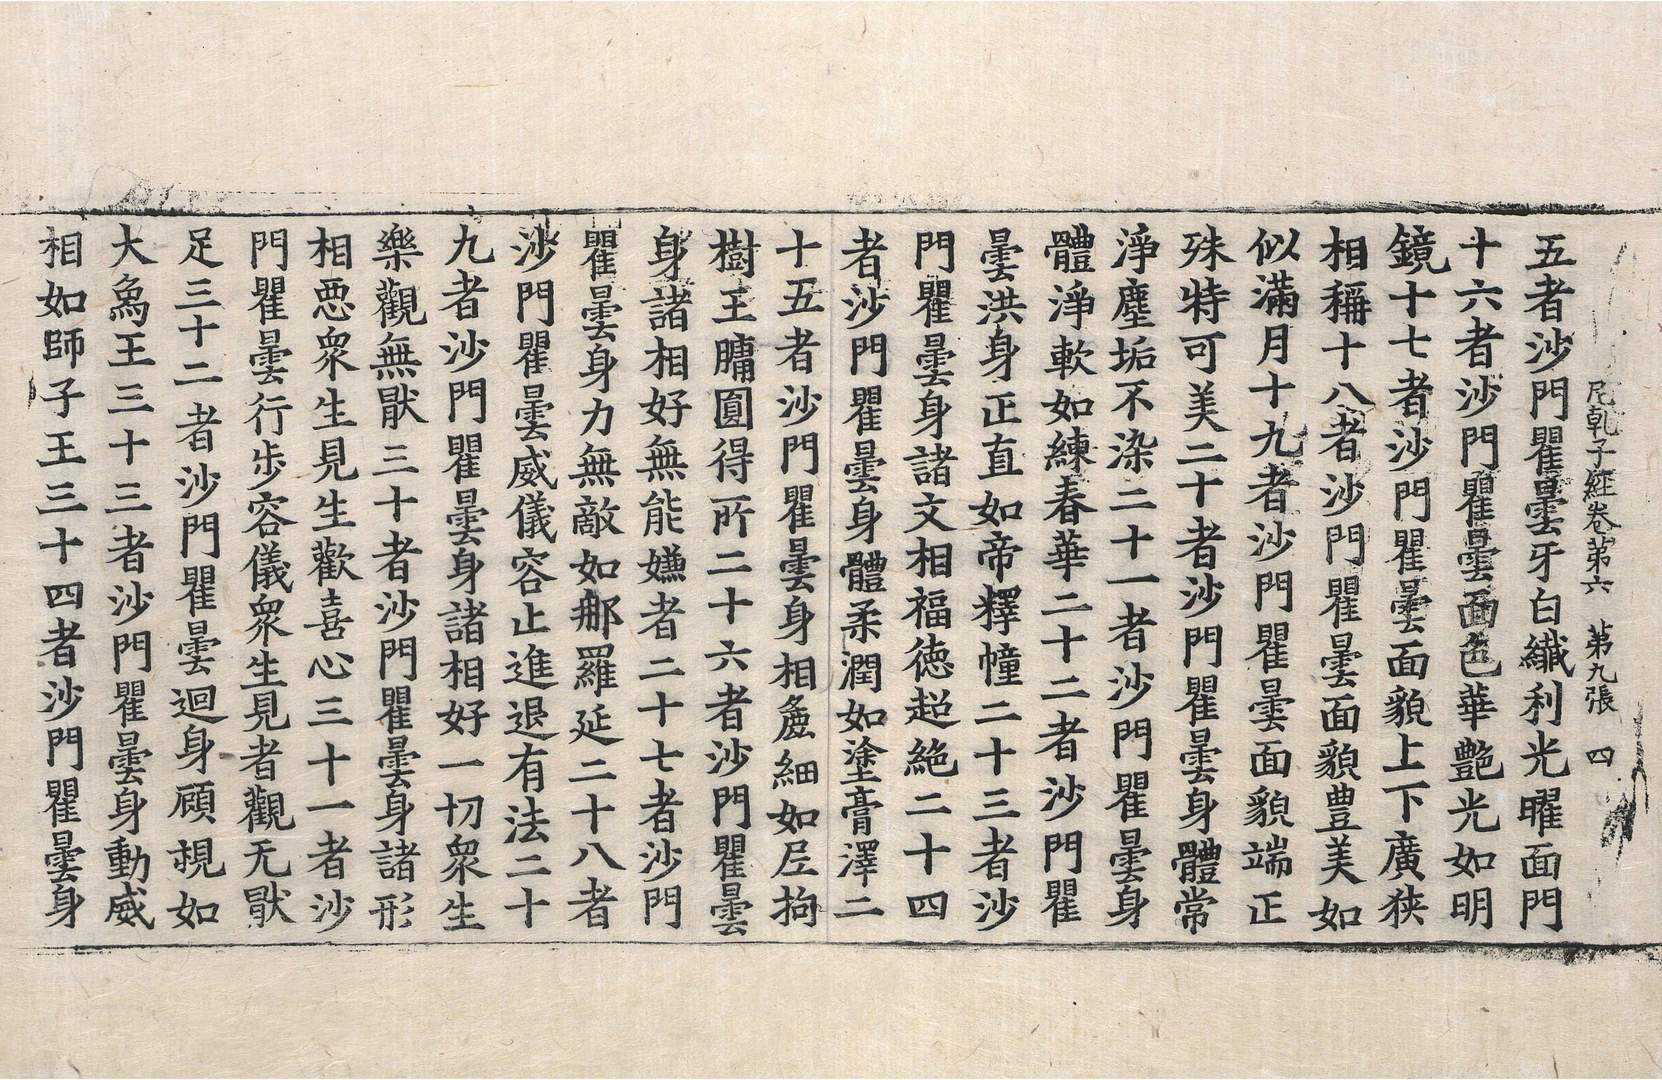 尼乹子經卷第六　第九張　四
五者沙門瞿曇牙白纖利光曜面門
十六者沙門瞿曇面色華艷光如明
鏡十七者沙門瞿曇面貌上下廣狹
相稱十八者沙門瞿曇面貌豊美如
似滿月十九者沙門瞿曇面貌端正
殊特可美二十者沙門瞿曇身體常
淨塵垢不染二十一者沙門瞿曇身
體淨軟如練春華二十二者沙門瞿
曇洪身正直如帝釋幢二十三者沙
門瞿曇身諸文相福德超絶二十四
者沙門瞿曇身體柔潤如塗膏澤二
十五者沙門瞿曇身相麁細如尼拘
樹王𦟛圓得所二十六者沙門瞿曇
身諸相好無能嫌者二十七者沙門
瞿曇身力無敵如那羅延二十八者
沙門瞿曇威儀容止進退有法二十
九者沙門瞿曇身諸相好一切衆生
樂觀無猒三十者沙門瞿曇身諸形
相惡衆生見生歡喜心三十一者沙
門瞿曇行步容儀衆生見者觀无猒
足三十二者沙門瞿曇迴身顧視如
大象王三十三者沙門瞿曇身動威
相如師子王三十四者沙門瞿曇身